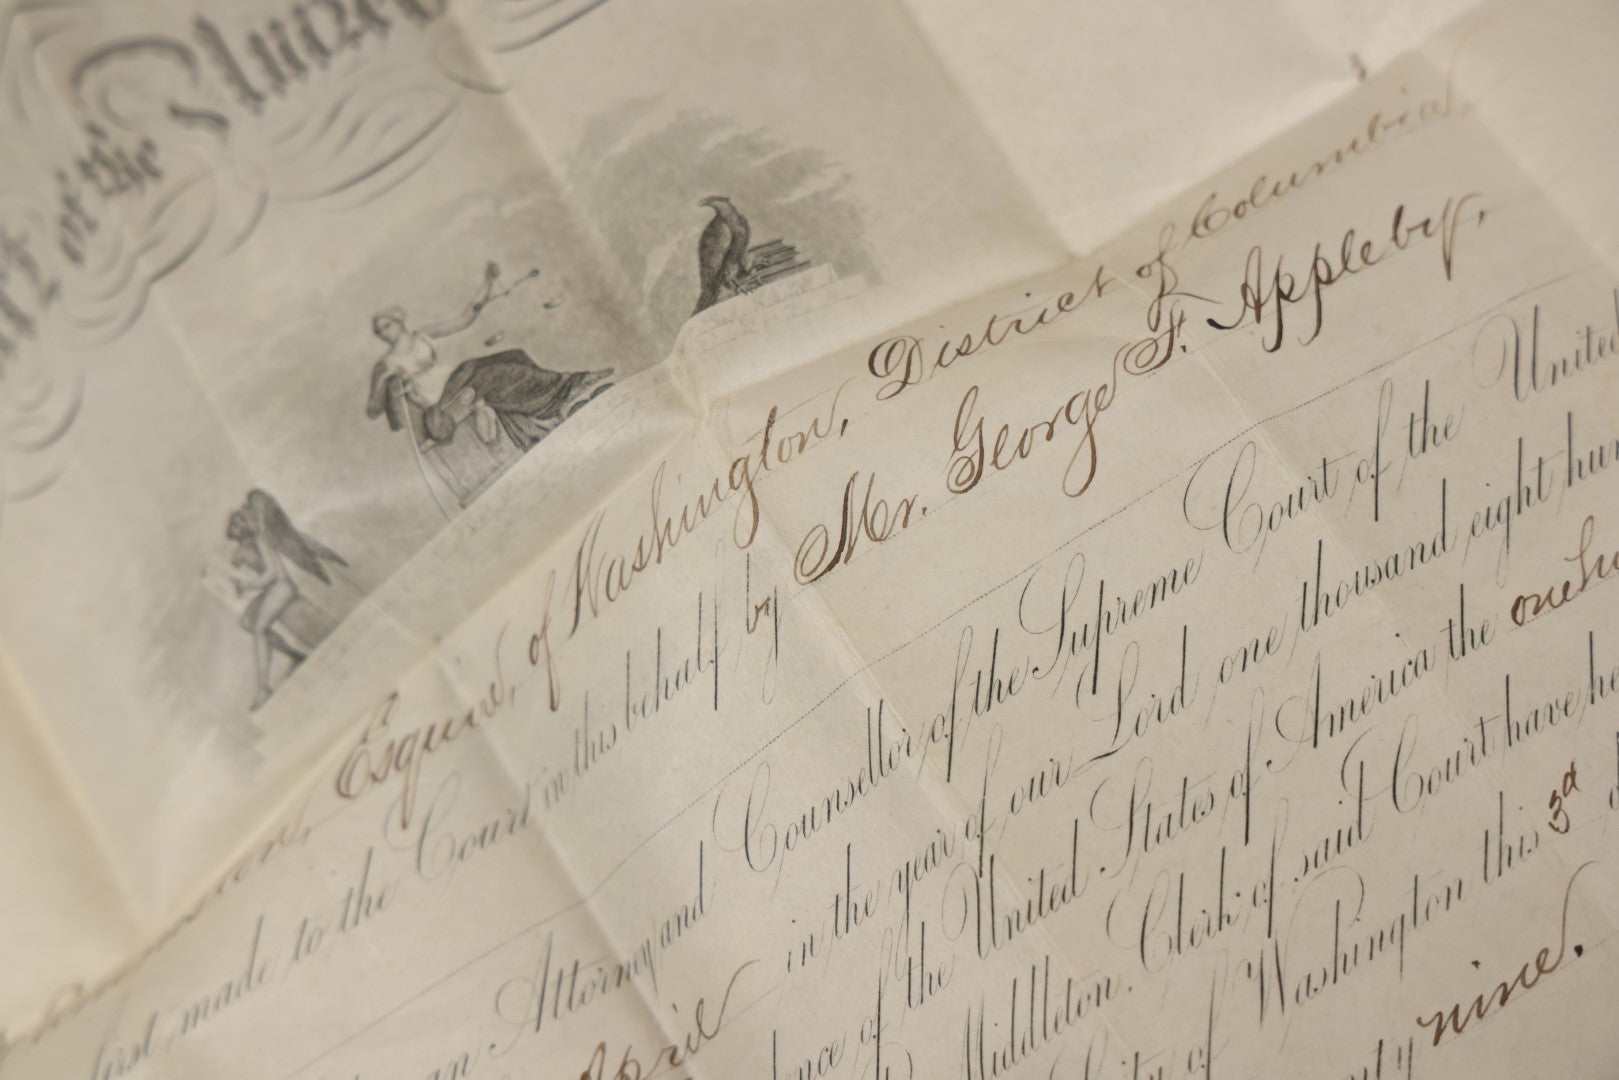 of the United
Esquire, of Washington, District of Columbia,
first made to the Court in this behalf by Mr. George F. Appleby,
an Attorney and Counsellor of the Supreme Court of the United
April in the year of our Lord one thousand eight hun
ence of the United States of America the one hu
Middleton. Clerk of said Court have he
City of Washington this 3d d
nine.